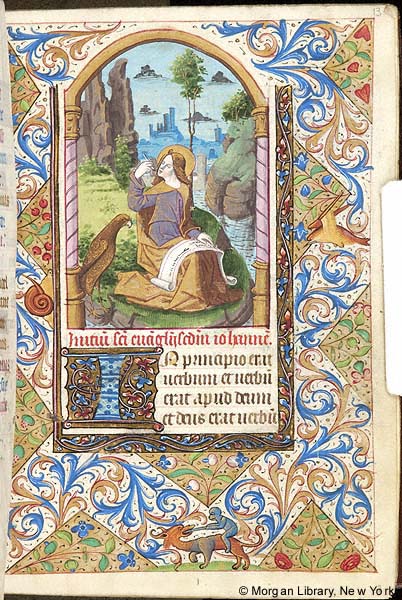 13
Initiu sci euāglij scdm iohanne.
IN principio erat
uerbum et uerbū
erat apud deum
et deus erat uerbū
© Morgan Library, New York